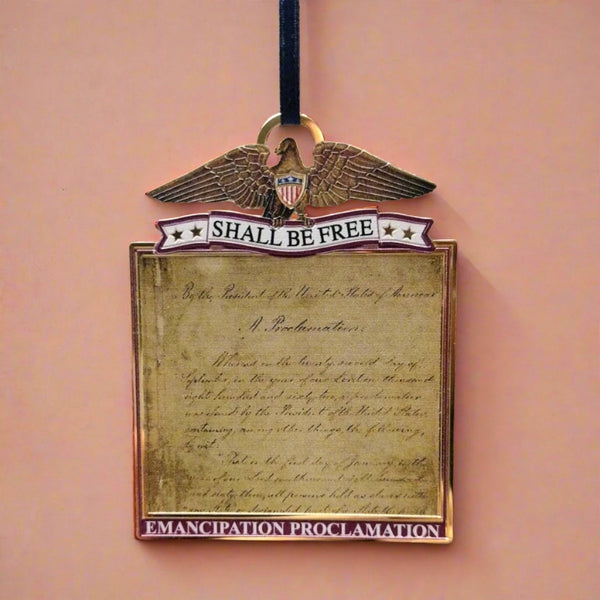 SHALL BE FREE
By the President of the United States of America:
A Proclamation.
Whereas on the twenty second day of
September, in the year of our Lord one thousand
eight hundred and sixty two, a proclamation
was issued by the President of the United States,
containing, among other things, the following,
to wit:
"That on the first day of January, in the
year of our Lord one thousand eight hundred
and sixty-three, all persons held as slaves within
any State or designated part of a State, the
EMANCIPATION PROCLAMATION